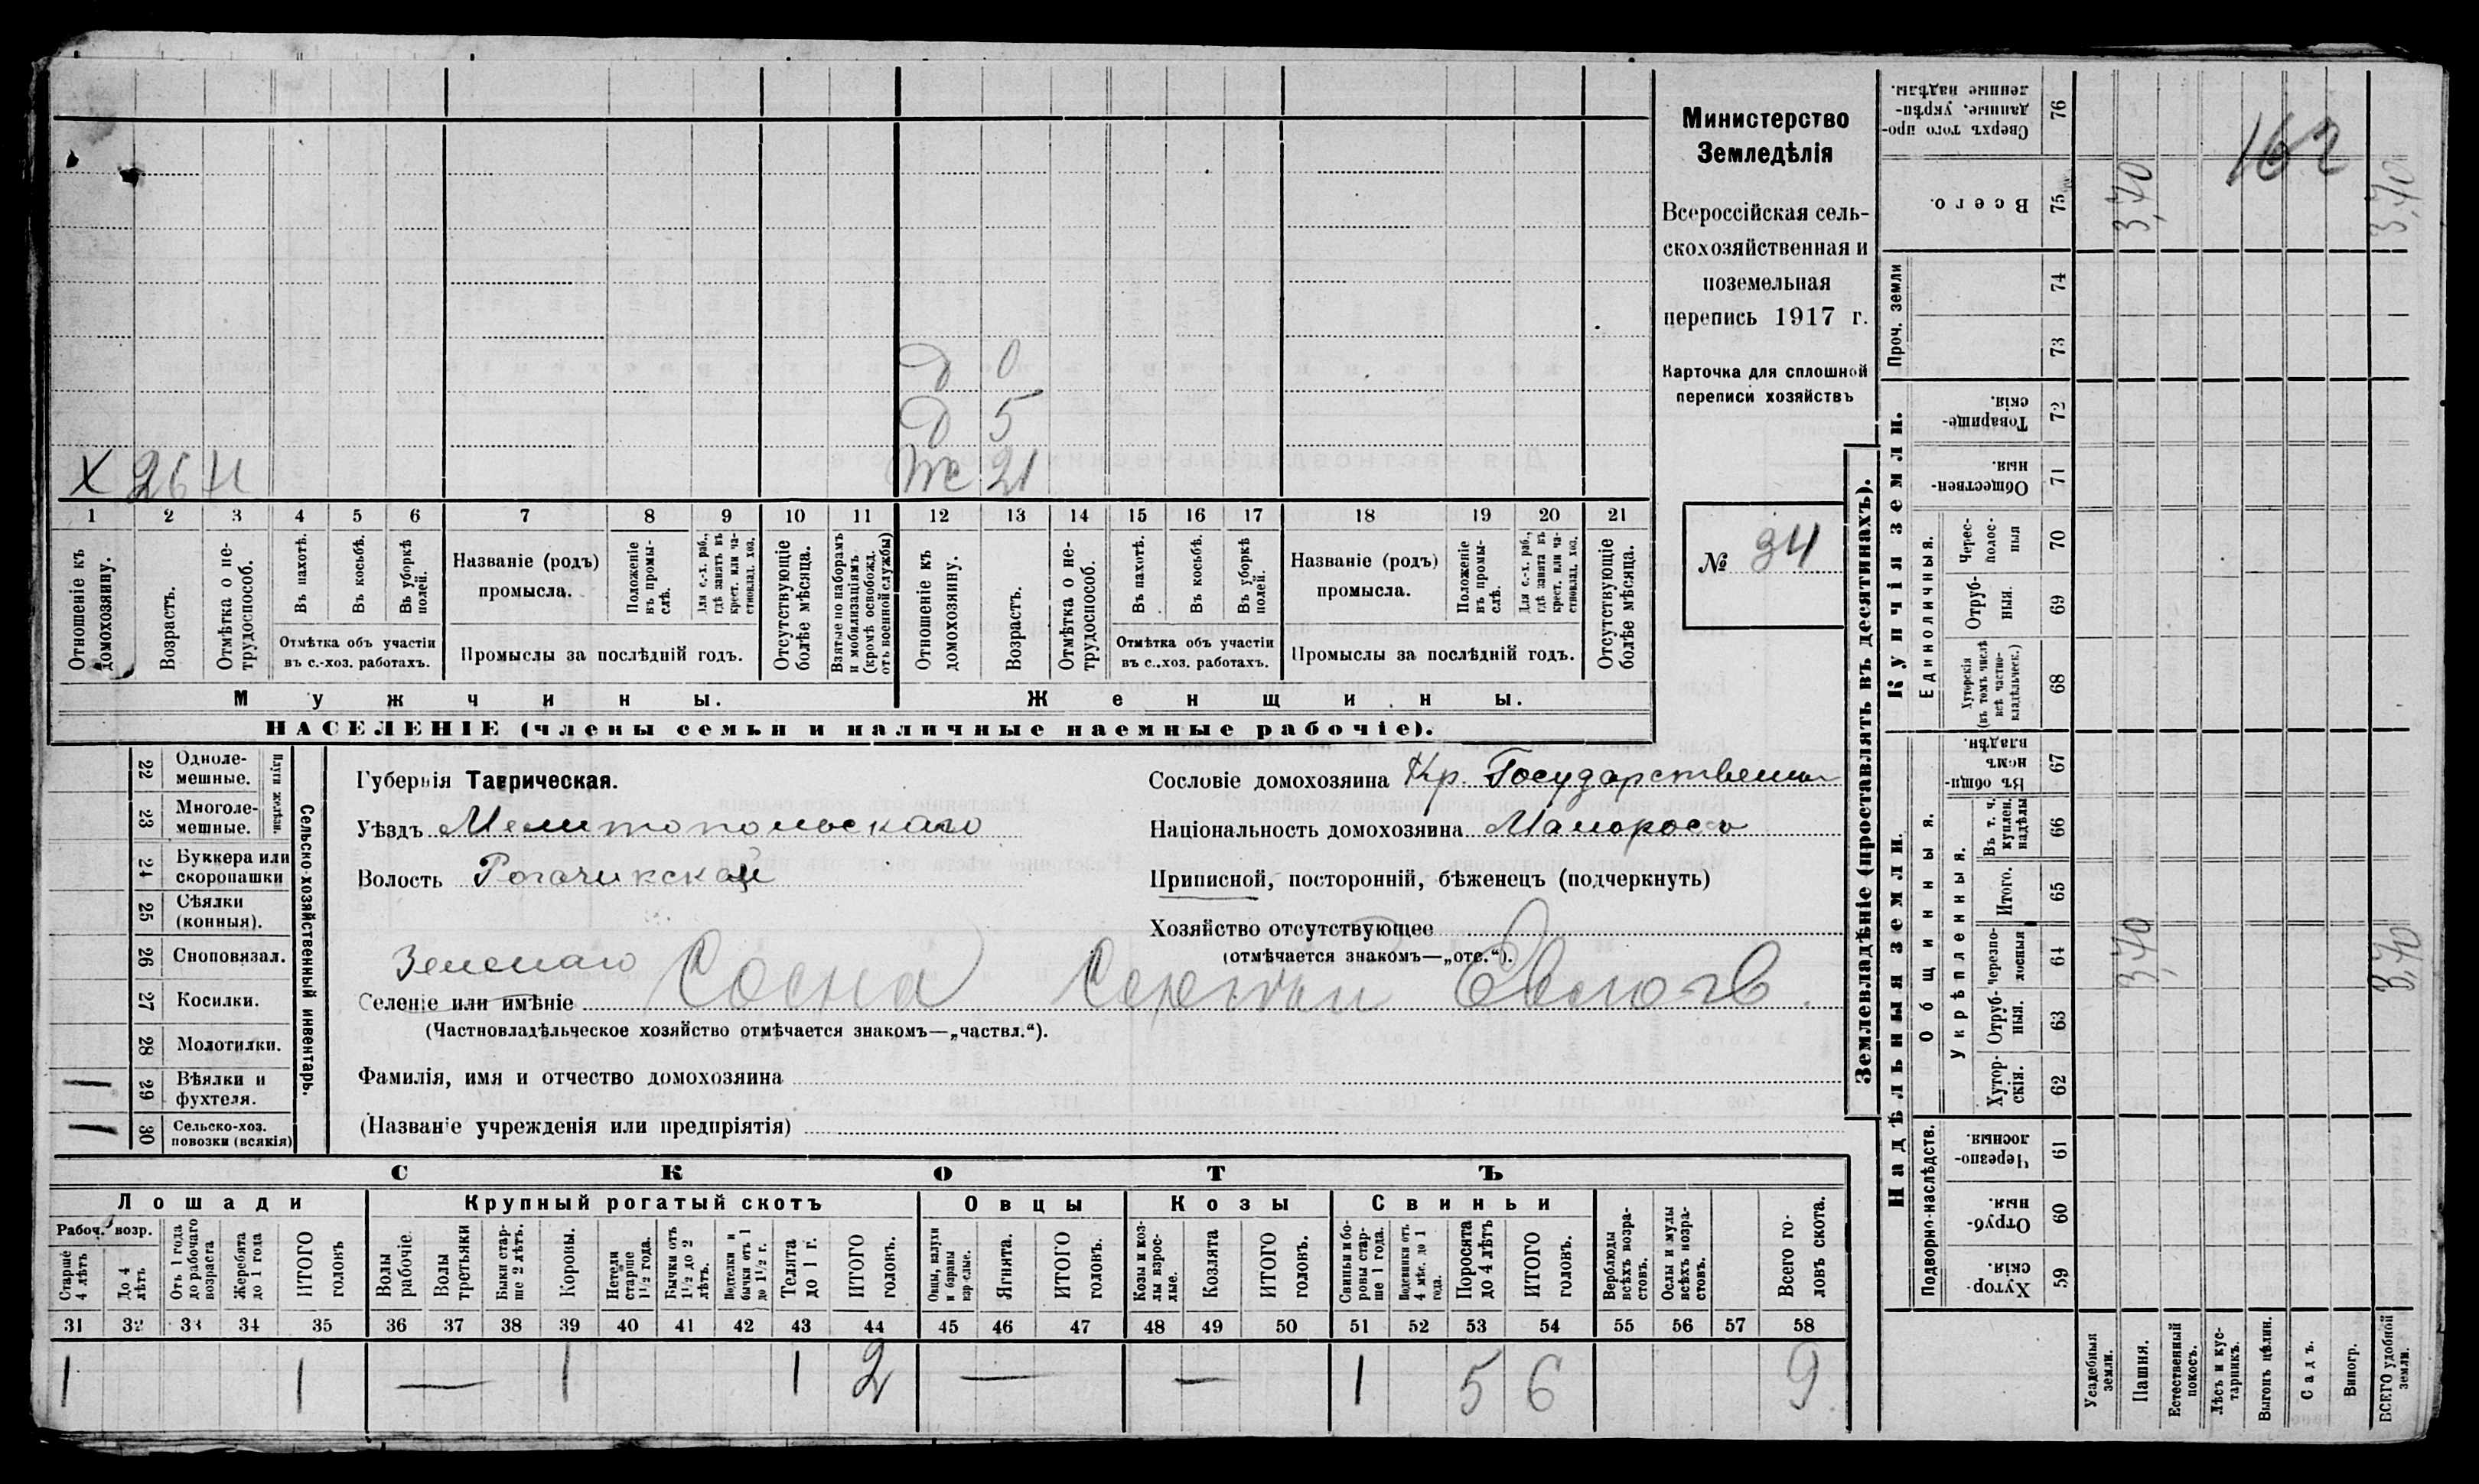 Х 26 н
Д 0
Д 5
Же 21
1 2 3 4 5 6 7 8 9 10 11 12 13 14 15 16 17 18 19 20 21
Отношеніе къ домохозяину.
Возрастъ.
Отмѣтка о нетрудоспособ.
Въ пахотѣ.
Въ косьбѣ.
Въ уборкѣ полей.
Отмѣтка объ участіи
въ с.-хоз. работахъ.
Названіе (родъ)
промысла.
Положеніе въ промыслѣ.
Для с.-х. раб., гдѣ занятъ въ крест. или частновлад. хоз.
Промыслы за послѣдній годъ.
Отсутствующіе болѣе мѣсяца.
Взятые по наборамъ и мобилизаціямъ (кромѣ освобожд. отъ военной службы)
Отношеніе къ домохозяину.
Возрастъ.
Отмѣтка о нетрудоспособ.
Въ пахотѣ.
Въ косьбѣ.
Въ уборкѣ полей.
Отмѣтка объ участіи
въ с.-хоз. работахъ.
Названіе (родъ)
промысла.
Положеніе въ промыслѣ.
Для с.-х. раб., гдѣ занята въ крест. или частновлад. хоз.
Промыслы за послѣдній годъ.
Отсутствующіе болѣе мѣсяца.
Мужчины.
Женщины.
НАСЕЛЕНІЕ (члены семьи и наличные наемные рабочіе).
Министерство
Земледѣлія
Всероссійская сель-
скохозяйственная и
поземельная
перепись 1917 г.
Карточка для сплошной
переписи хозяйствъ
№ 34
22 Одноле-
мешные.
23 Многоле-
мешные.
Плуги желѣзн.
24 Буккера или
скоропашки
25 Сѣялки
(конныя).
26 Сноповязал.
27 Косилки.
28 Молотилки.
1 29 Вѣялки и
фухтеля.
1 30 Сельско-хоз.
повозки (всякія)
Сельско-хозяйственный инвентарь.
Губернія Таврическая.
Уѣздъ Мелитопольскаго
Волость Рогачикской
Зеленаго
Селеніе или имѣніе Сосна Сергѣй
(Частновладѣльческое хозяйство отмѣчается знакомъ—„частвл.“).
Фамилія, имя и отчество домохозяина
(Названіе учрежденія или предпріятія)
Сословіе домохозяина Кр. Государственный
Національность домохозяина Малороссъ
Приписной, посторонній, бѣженецъ (подчеркнуть)
Хозяйство отсутствующее
(отмѣчается знакомъ—„отс.“).
СКОТЪ
Лошади
Крупный рогатый скотъ
Овцы
Козы
Свиньи
Рабоч. возр.
Старше 4 лѣтъ
До 4 лѣтъ
Отъ 1 года до рабочаго возраста
Жеребята до 1 года
ИТОГО головъ
Волы рабочіе.
Волы третьяки
Быки старше 2 лѣтъ.
Коровы.
Нетели старше 1½ года.
Бычки отъ 1½ до 2 лѣтъ.
Подтелки и бычки отъ 1 до 1½ г.
Телята до 1 г.
ИТОГО головъ.
Овцы, валухи и бараны взрослые.
Ягнята.
ИТОГО головъ.
Козы и козлы взрослые.
Козлята
ИТОГО головъ.
Свиньи и боровы старше 1 года.
Подсвинки отъ 4 мѣс. до 1 года.
Поросята до 4 лѣтъ
ИТОГО головъ.
Верблюды всѣхъ возрастовъ.
Ослы и мулы всѣхъ возрастовъ.
Всего головъ скота.
31 32 33 34 35 36 37 38 39 40 41 42 43 44 45 46 47 48 49 50 51 52 53 54 55 56 57 58
1 1 — 1 1 2 — — 1 5 6 9
Землевладѣніе (проставлять въ десятинахъ).
Купчія земли.
Надѣльныя земли.
Сверхъ того проданные, укрѣпленные надѣлы. 76
Всего. 75
Проч. земли
74
73
Товарищескія. 72
Общественныя. 71
Единоличныя.
Чересполосныя 70
Отрубныя. 69
Хуторскія (въ томъ числѣ всѣ частновладѣльческ.) 68
Общинныя.
Въ общинномъ владѣн. 67
Укрѣпленныя.
Въ т. ч. куплен. надѣлы 66
Итого. 65
Черезполосныя 64
Отрубныя. 63
Хуторскія. 62
Подворно-наслѣдств.
Черезполосныя. 61
Отрубныя. 60
Хуторскія. 59
Усадебныя земли.
Пашня.
Естественный покосъ.
Лѣсъ и кустарникъ.
Выгонъ цѣлин.
Садъ.
Виногр.
ВСЕГО удобной земли.
162
3,70
3,70
3,70
3,70